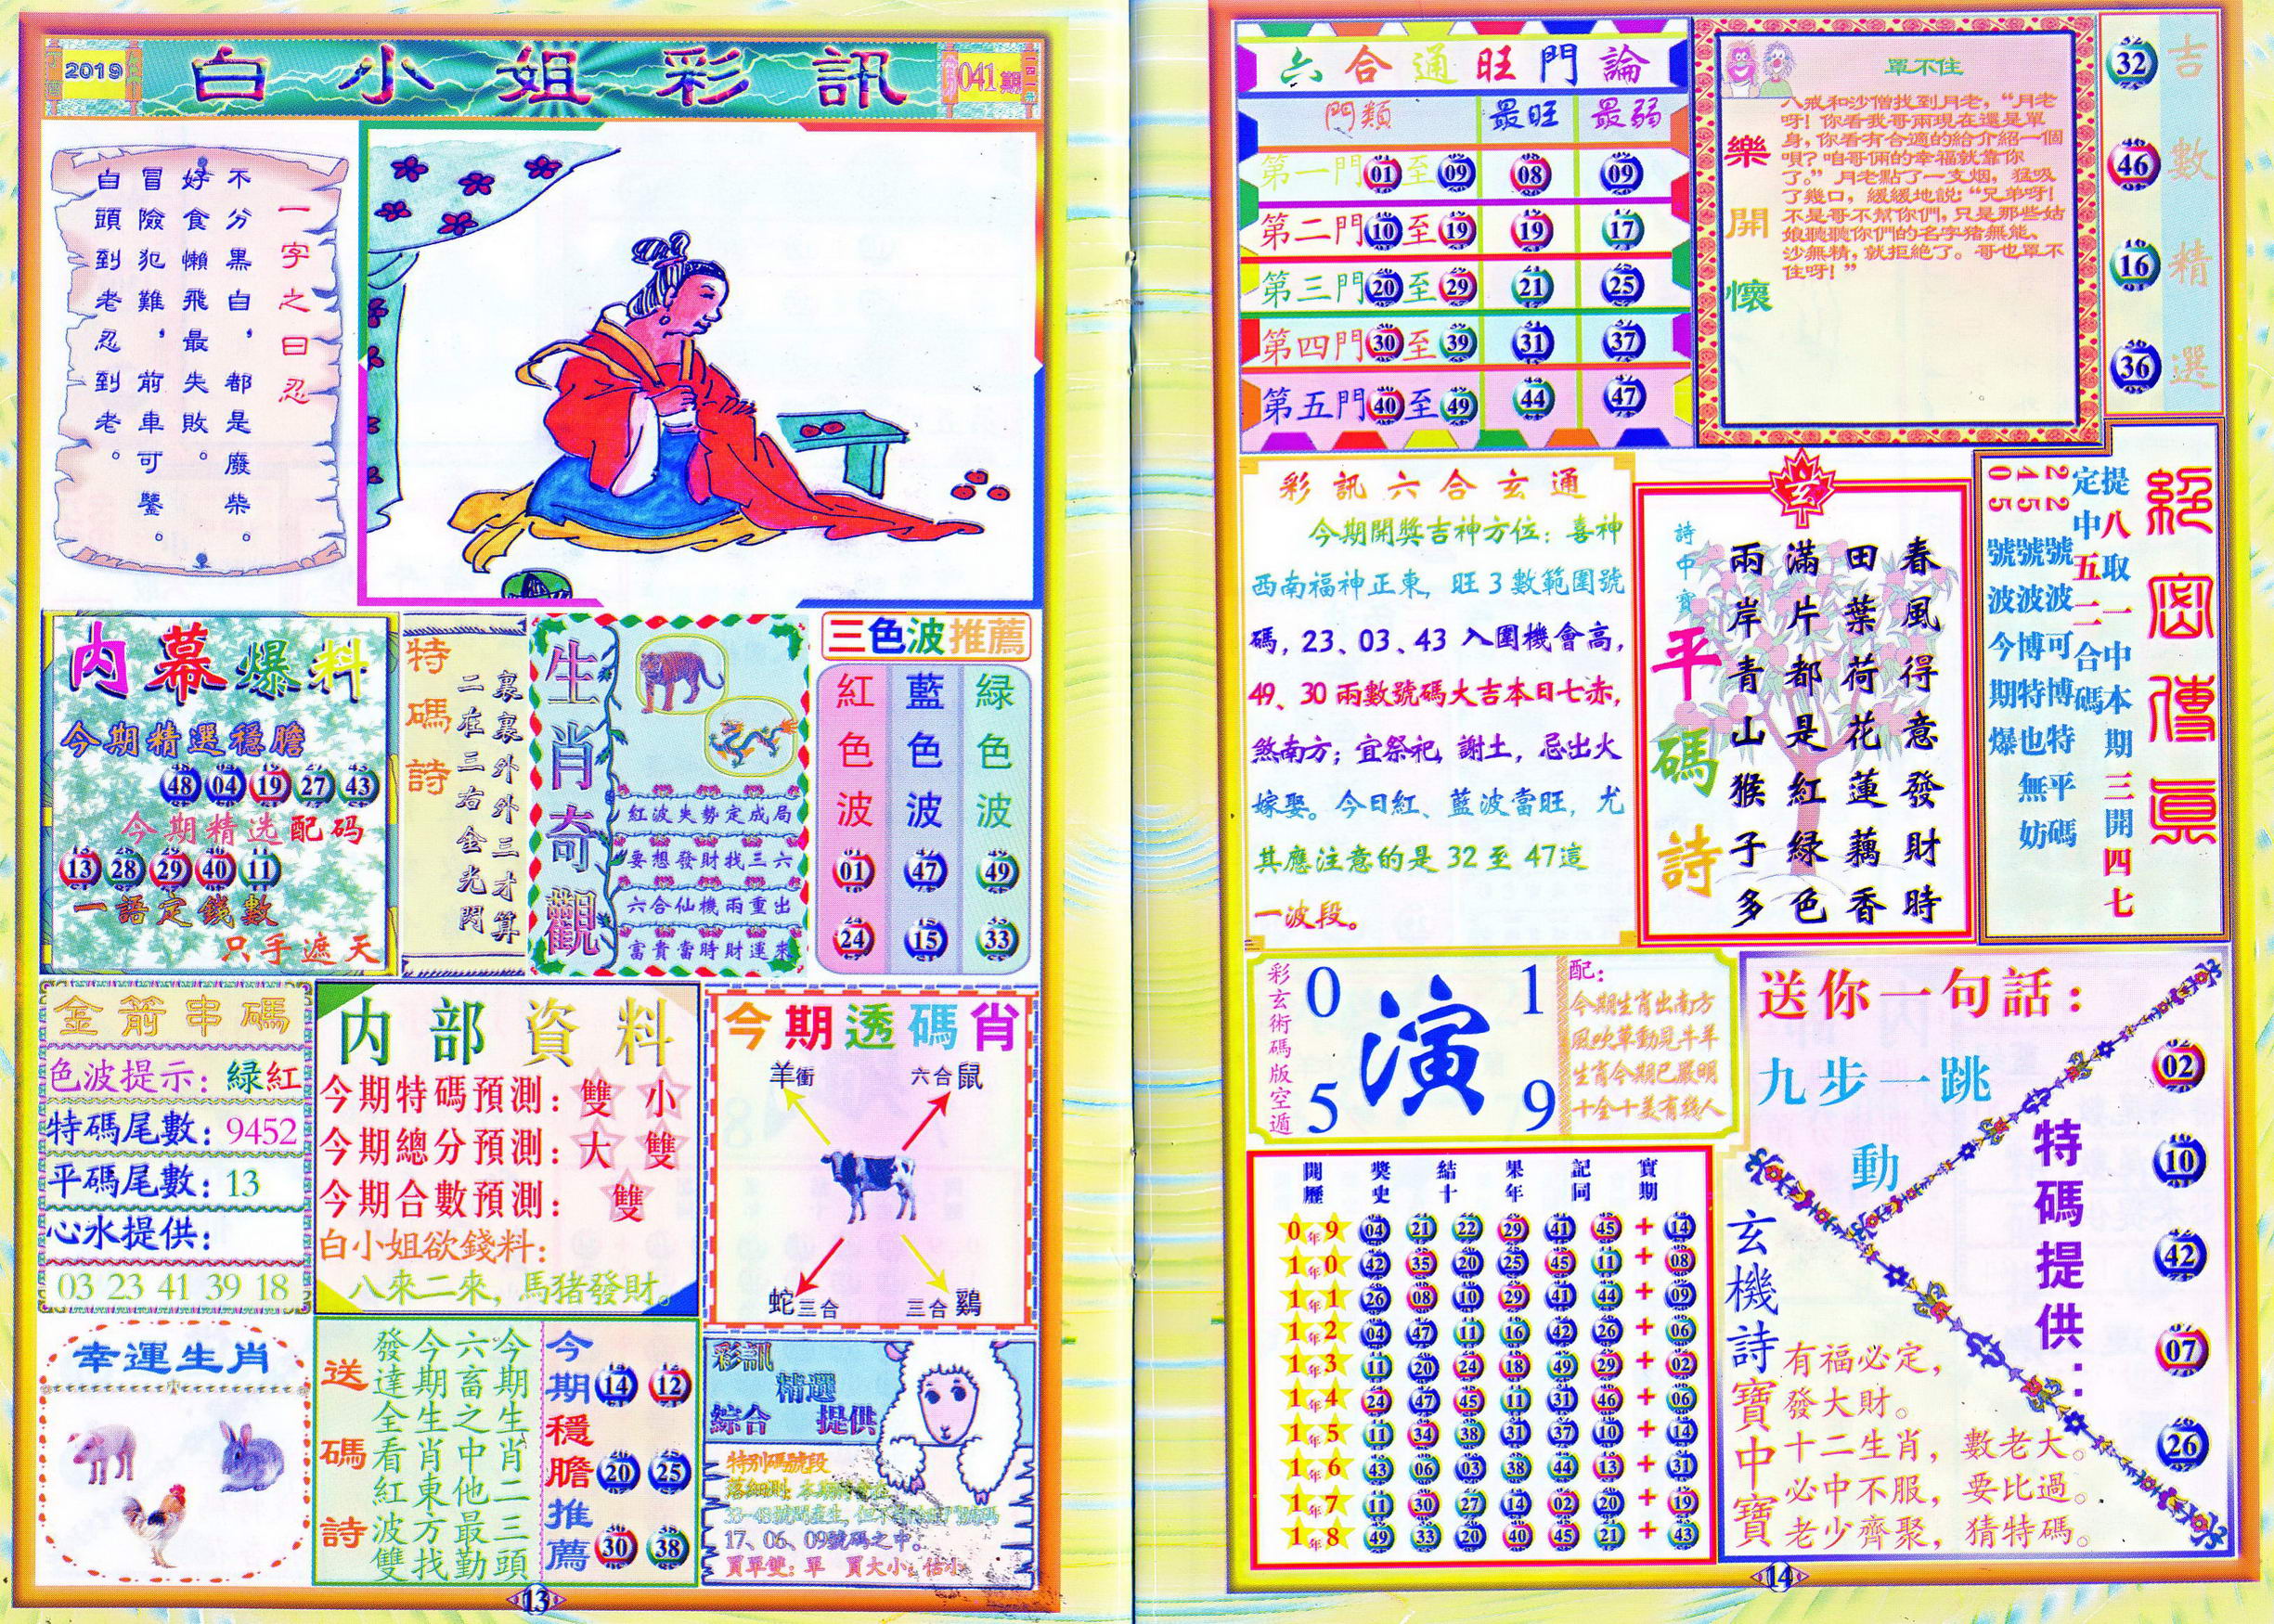 2019
白小姐彩訊
041期
一字之曰忍
不分黑白，都是廢柴。
好食懶飛最失敗。
冒險犯難，前車可鑒。
白頭到老忍到老。
内幕爆料
今期精選穩膽
48 04 19 27 43
今期精选配码
13 28 29 40 11
一語定錢數
只手遮天
特碼詩
裏裏外外三才算
二在三右金光閃
生肖奇觀
紅波失勢定成局
要想發財找三六
六合仙機兩重出
富貴當時財運來
三色波推薦
紅色波 藍色波 緑色波
01 47 49
24 15 33
金箭串碼
色波提示：緑紅
特碼尾數：9452
平碼尾數：13
心水提供：
03 23 41 39 18
内部資料
今期特碼預測：雙 小
今期總分預測：大 雙
今期合數預測：雙
白小姐欲錢料：
八來二來，馬猪發財。
今期透碼肖
羊衝 六合鼠
蛇三合 三合鷄
幸運生肖
送碼詩
今期生肖二三頭
六畜之中他最勤
今期生肖東方找
發達全看紅波雙
今期穩膽推薦
14 12
20 25
30 38
彩訊
精選
綜合 提供
特別碼號段
17、06、09號碼之中。
買單雙：單 買大小：估小
13
六合通旺門論
門類 最旺 最弱
第一門01至09 08 09
第二門10至19 19 17
第三門20至29 21 25
第四門30至39 31 37
第五門40至49 44 47
樂開懷
罩不住
八戒和沙僧找到月老，“月老
呀！你看我哥兩現在還是單
身，你看有合適的給介紹一個
唄？咱哥倆的幸福就靠你
了。”月老點了一支烟，猛吸
了幾口，緩緩地説：“兄弟呀！
不是哥不幫你們，只是那些姑
娘聽聽你們的名字猪無能、
沙無精，就拒絶了。哥也罩不
住呀！”
吉數精選
32
46
16
36
彩訊六合玄通
今期開獎吉神方位：喜神
西南福神正東，旺3數範圍號
碼，23、03、43入圍機會高，
49、30兩數號碼大吉本日七赤，
煞南方；宜祭祀，謝土，忌出火
嫁娶。今日紅、藍波當旺，尤
其應注意的是32至47這
一波段。
玄
詩中寶
平碼詩
春風得意發財時
田葉荷花蓮藕香
滿片都是紅緑色
兩岸青山猴子多
絕密傳真
提八取一中本期三開四七
定中五二合碼
22號波可博特平碼
45號波博特也無妨
05號波今期爆
彩玄術碼版空遁
0 1
演
5 9
配：
今期生肖出南方
風吹草動見牛羊
生肖今期已嚴明
十全十美有幾人
開獎結果記寶
歷史十年同期
09年 04 21 22 29 41 45 + 14
10年 42 35 20 25 45 11 + 08
11年 26 08 10 29 41 44 + 09
12年 04 47 11 16 42 26 + 06
13年 11 20 24 18 49 29 + 02
14年 24 47 45 11 31 46 + 06
15年 11 34 38 31 37 10 + 14
16年 43 06 03 38 44 13 + 31
17年 11 30 27 14 02 20 + 19
18年 49 33 20 40 45 21 + 43
送你一句話：
九步一跳
動
特碼提供：
02
10
42
07
26
玄機詩寶中寶
有福必定，
發大財。
十二生肖，數老大。
必中不服，要比過。
老少齊聚，猜特碼。
14